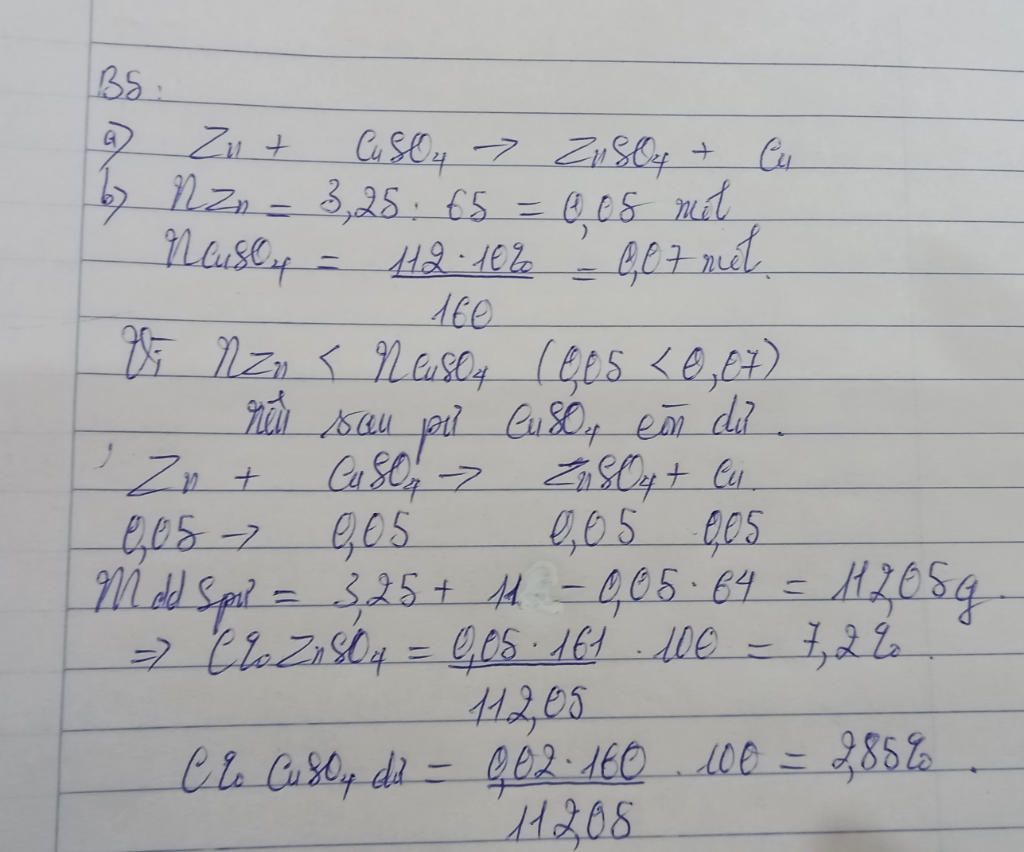 B5:
a) Zn + CuSO4 → ZnSO4 + Cu
b) nZn = 3,25 : 65 = 0,05 mol
nCuSO4 = 112 . 10% = 0,07 mol.
160
Vì nZn < nCuSO4 (0,05 < 0,07)
nên sau pứ CuSO4 còn dư.
Zn + CuSO4 → ZnSO4 + Cu
0,05 → 0,05 0,05 0,05
m dd spứ = 3,25 + 11 - 0,05 . 64 = 112,05g.
=> C% ZnSO4 = 0,05 . 161 . 100 = 7,2%.
112,05
C% CuSO4 dư = 0,02 . 160 . 100 = 2,85%.
112,05